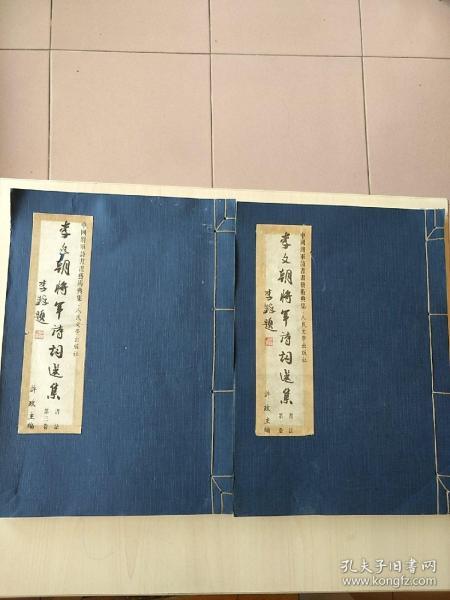 中國將軍詩書畫藝術典集·人民文學出版社
李文朝將軍詩詞選集
李鐸題
書法
第三卷
許政主編
中國將軍詩書畫藝術典集·人民文學出版社
李文朝將軍詩詞選集
李鐸題
書法
許政主編
孔夫子旧书网
www.kongfz.com